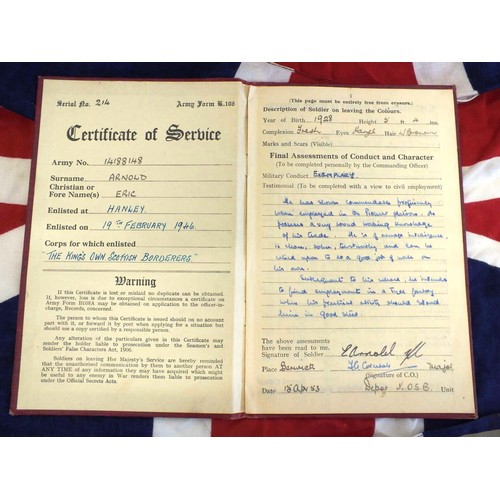 Serial No. 214 Army Form B.108
Certificate of Service
Army No. 14188148
Surname ARNOLD
Christian or
Fore Name(s) ERIC
Enlisted at HANLEY.
Enlisted on 19TH FEBRUARY 1946.
Corps for which enlisted
"THE KING'S OWN SCOTTISH BORDERERS"
Warning
If this Certificate is lost or mislaid no duplicate can be obtained. If,
however, loss is due to exceptional circumstances a certificate on
Army Form B108A may be obtained on application to the officer-in-
charge, Records, concerned.
The person to whom this Certificate is issued should on no account
part with it, or forward it by post when applying for a situation but
should use a copy certified by a responsible person.
Any alteration of the particulars given in this Certificate may
render the holder liable to prosecution under the Seamen's and
Soldiers' False Characters Act, 1906.
Soldiers on leaving His Majesty's Service are hereby reminded
that the unauthorised communication by them to another person AT
ANY TIME of any information they may have acquired which might
be useful to any enemy in War renders them liable to prosecution
under the Official Secrets Acts.
1
(This page must be entirely free from erasure.)
Description of Soldier on leaving the Colours.
Year of Birth 1928 Height 5 ft 4 ins.
Complexion Fresh Eyes Hair Brown
Marks and Scars (Visible)
Final Assessments of Conduct and Character
(To be completed personally by the Commanding Officer)
Military Conduct EXEMPLARY.
Testimonial (To be completed with a view to civil employment)
He has shown commendable proficiency
when employed in the Pioneer platoon. He
possesses a very sound working knowledge
of his trade. He is of average intelligence
is clean, sober, trustworthy and can be
relied upon to do a good job of work on
his own.
Subsequent to his release, he intends
to find employment in a
where his practical ability should stand
him in good stead.
The above assessments
have been read to me.
Signature of Soldier E Arnold
Place Berwick Major
(Signature of C.O.)
Date 15 Apr 53 Depot K.O.S.B. Unit